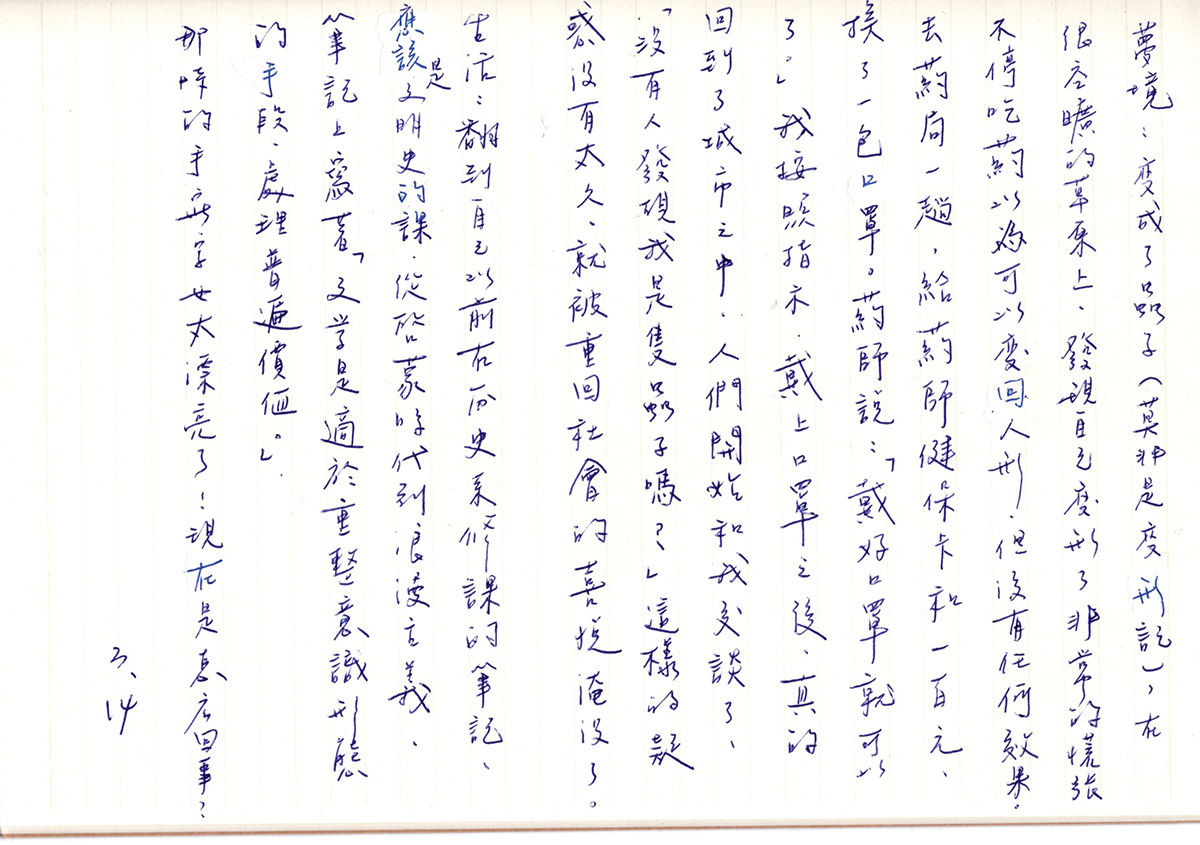 夢境：變成了蟲子（莫非是變形記），在
很空曠的草原上、發現自己變形了非常的慌張
不停吃葯以為可以變回人形．但沒有任何效果。
去葯局一趟，給葯師健保卡和一百元、
換了一包口罩。葯師說：「戴好口罩就可以
了。」我按照指示．戴上口罩之後、真的
回到了城市之中．人們開始和我交談了、
「沒有人發現我是隻蟲子嗎？」這樣的疑
惑沒有太久、就被重回社會的喜悅淹沒了。
生活：翻到自己以前在歷史系修課的筆記、
應該是文明史的課．從啓蒙時代到浪漫主義、
筆記上寫著「文学是適於重整意識形態
的手段、處理普遍價值。」.
那時的手寫字也太漂亮了！現在是怎広回事？
3、14